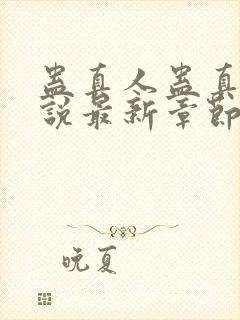 蛊真人蛊真
說最新章節
晚夏